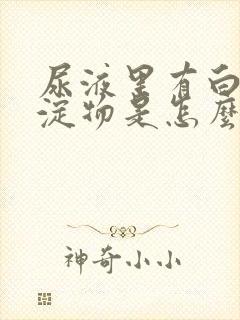 尿液里有白
淀物是怎麼
神奇小小